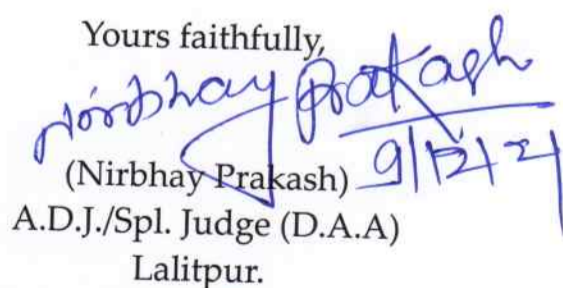 Yours faithfully,
Nirbhay Prakash
(Nirbhay Prakash) 9/12/21
A.D.J./Spl. Judge (D.A.A)
Lalitpur.